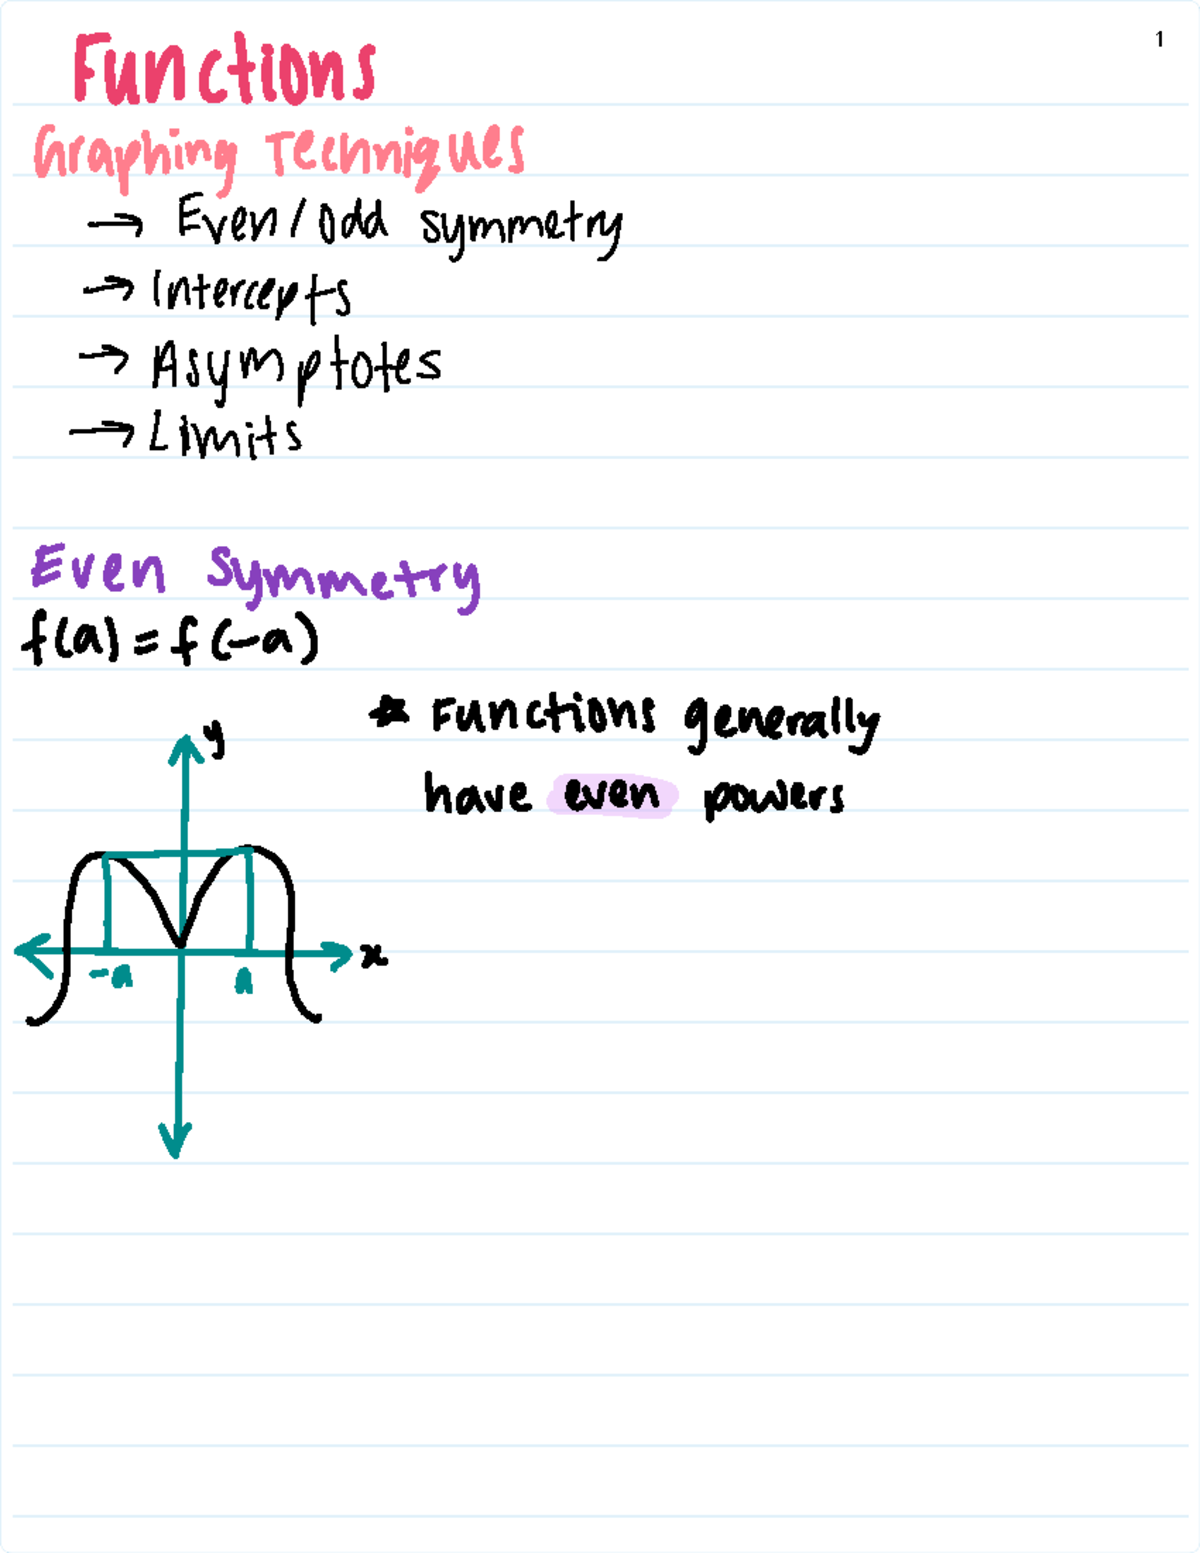 1
Functions
Graphing Techniques
→ Even/Odd symmetry
→ Intercepts
→ Asymptotes
→ Limits
Even Symmetry
f(a) = f(-a)
* Functions generally
have even powers
y
x
-a
a